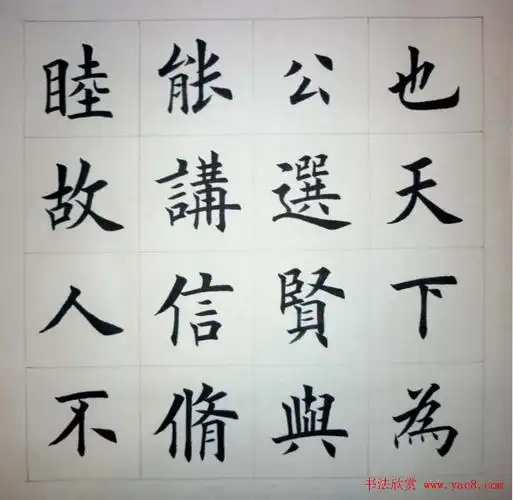 也天下為
公選賢與
能講信脩
睦故人不
书法欣赏 www.yac8.com